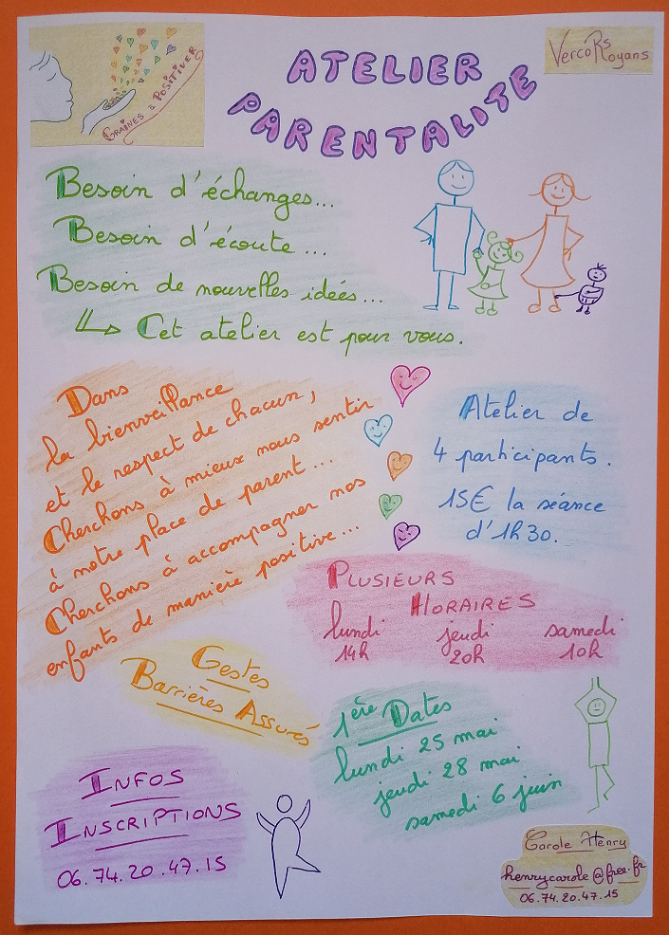 GRAINES à POSITIVER
ATELIER
PARENTALITE
VercoRs
Royans
Besoin d'échanges...
Besoin d'écoute...
Besoin de nouvelles idées...
Cet atelier est pour vous.
Dans
la bienveillance
et le respect de chacun,
Cherchons à mieux nous sentir
à notre place de parent...
Cherchons à accompagner nos
enfants de manière positive...
Atelier de
4 participants.
15€ la séance
d'1h30.
PLUSIEURS
HORAIRES
lundi jeudi samedi
14h 20h 10h
Gestes
Barrières Assurés
1ère Dates
lundi 25 mai
jeudi 28 mai
samedi 6 juin
INFOS
INSCRIPTIONS
06.74.20.47.15
Carole Henry
henrycarole@free.fr
06.74.20.47.15